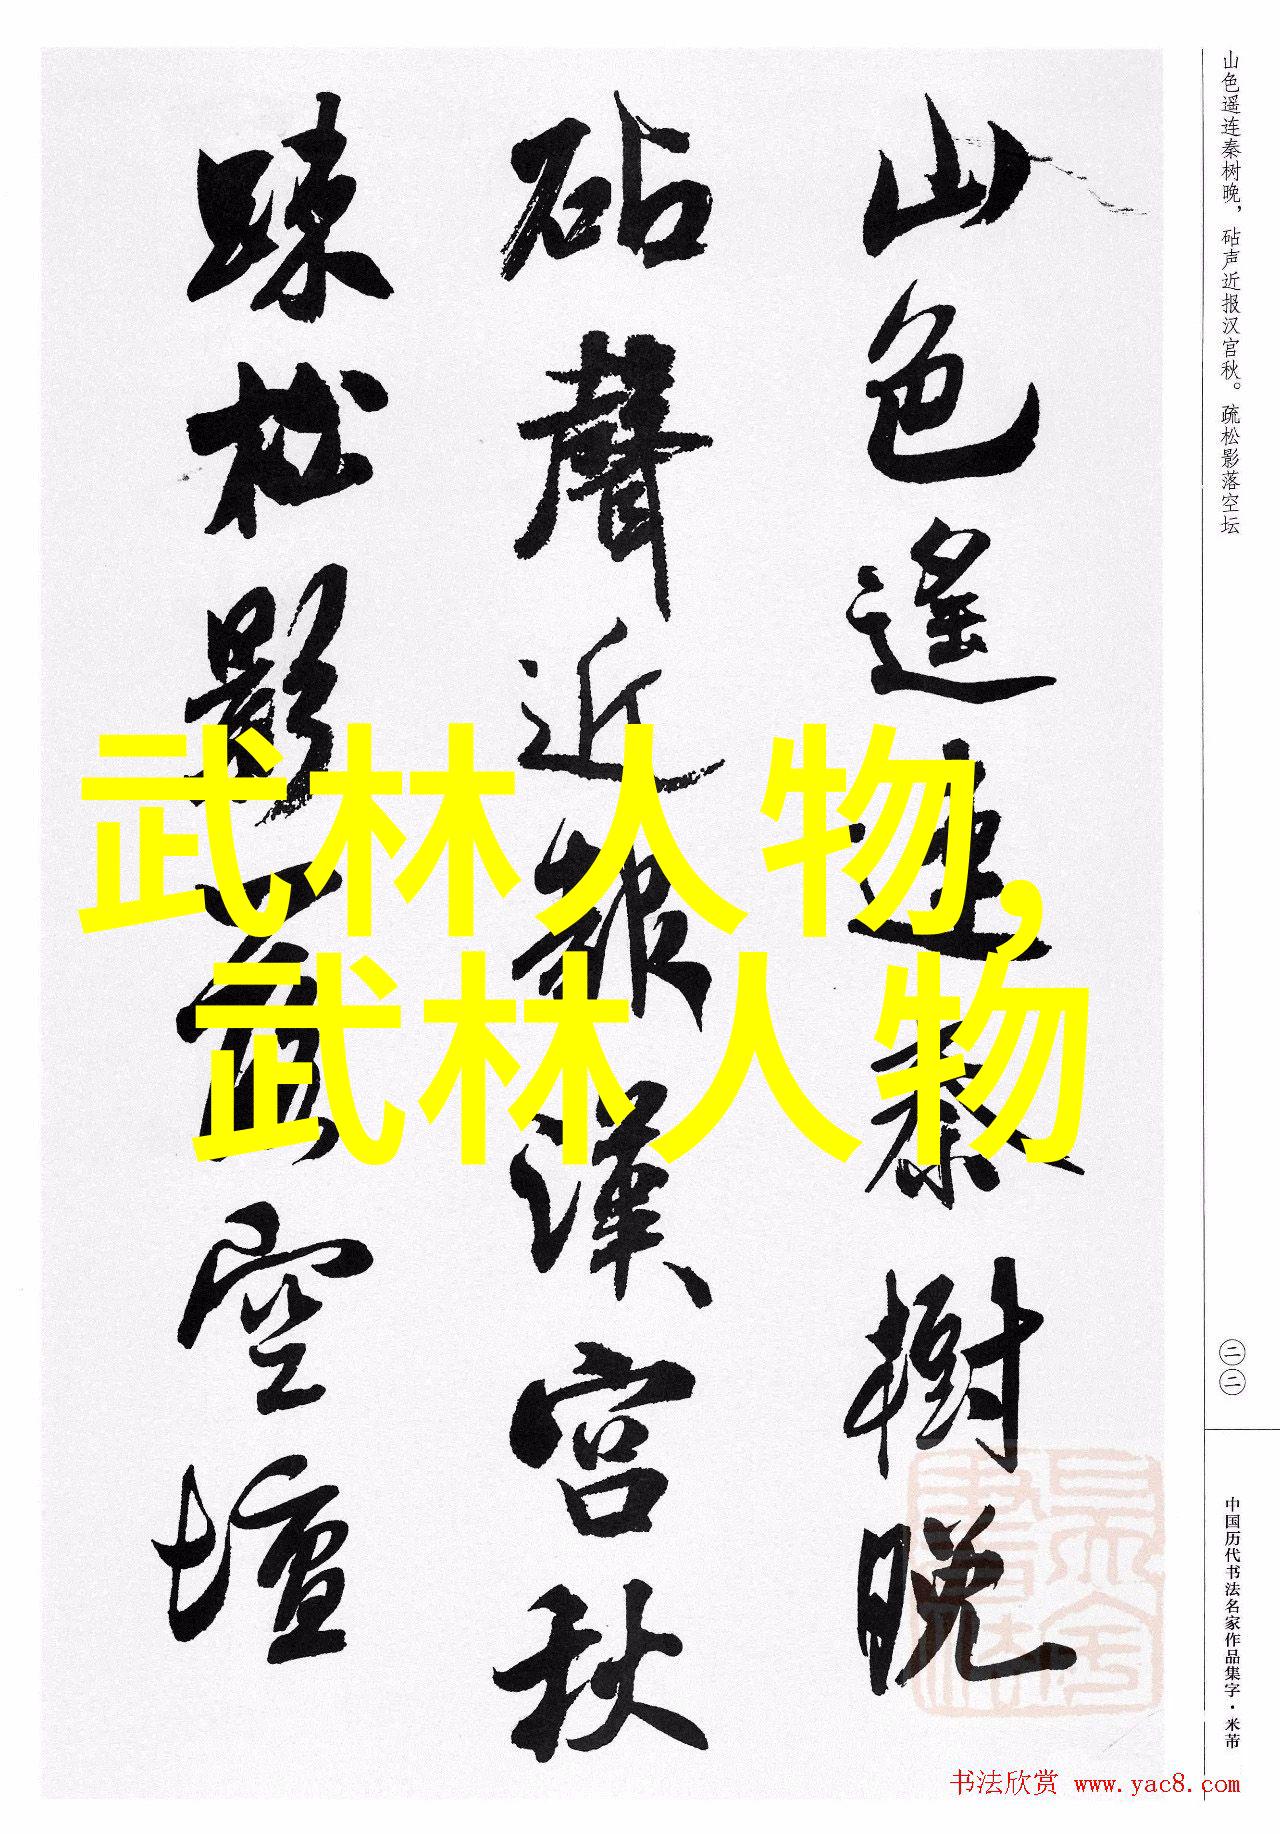 山色遥連秦樹晚
砧聲近報漢宮秋
踈松影落空壇
山色遥连秦树晚，砧声近报汉宫秋。疏松影落空坛
二二
中国历代书法名家作品集字·米芾
武林人物，
武林人物
书法欣赏 www.yac8.com